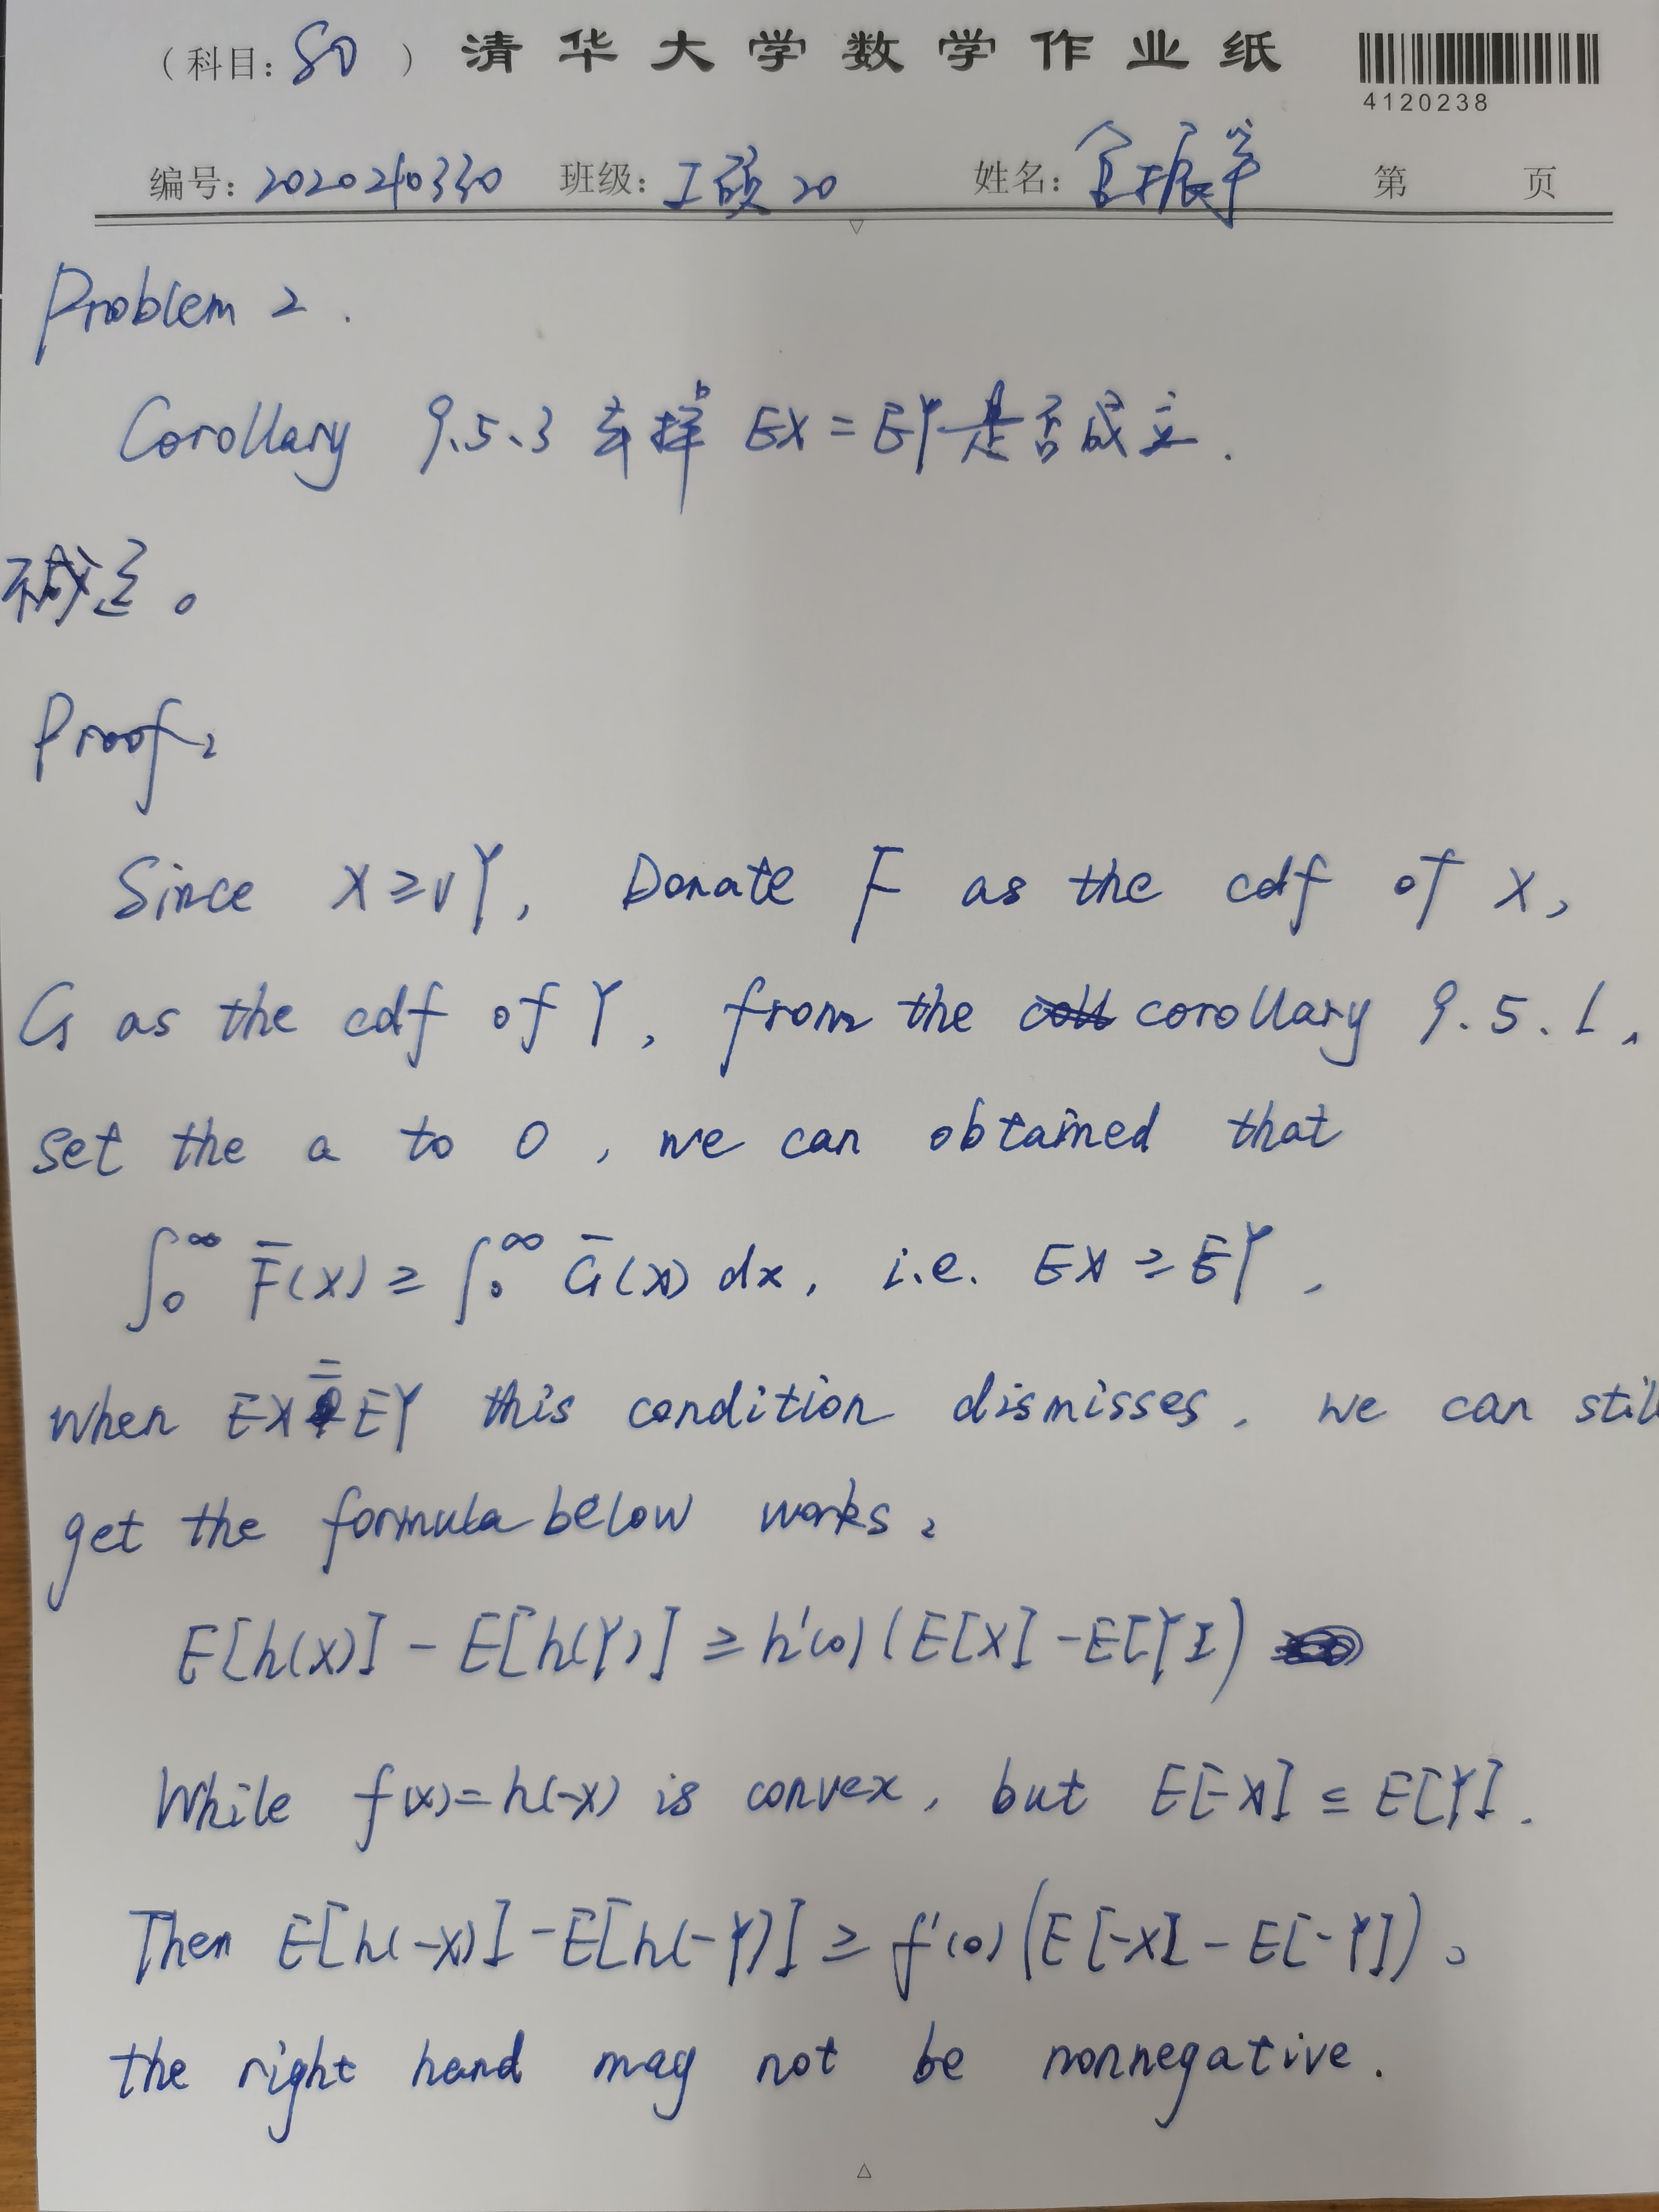 （科目: SO ） 清华大学数学作业纸
4120238
编号: 2020210330 班级: 工硕20 姓名: 第 页
Problem 2.
Corollary 9.5.3 去掉 EX = EY 是否成立.
不成立。
Proof:
Since X ≥v Y, Donate F as the cdf of X,
G as the cdf of Y, from the corollary 9.5.1,
set the a to 0, we can obtained that
∫₀^∞ F̄(x) ≥ ∫₀^∞ Ḡ(x) dx, i.e. EX ≥ EY,
when EX = EY this condition dismisses, we can still
get the formula below works:
E[h(X)] - E[h(Y)] ≥ h'(0) (E[X] - E[Y])
While f(x) = h(-x) is convex, but E[-X] ≤ E[Y].
Then E[h(-X)] - E[h(-Y)] ≥ f'(0) (E[-X] - E[-Y]).
the right hand may not be nonnegative.